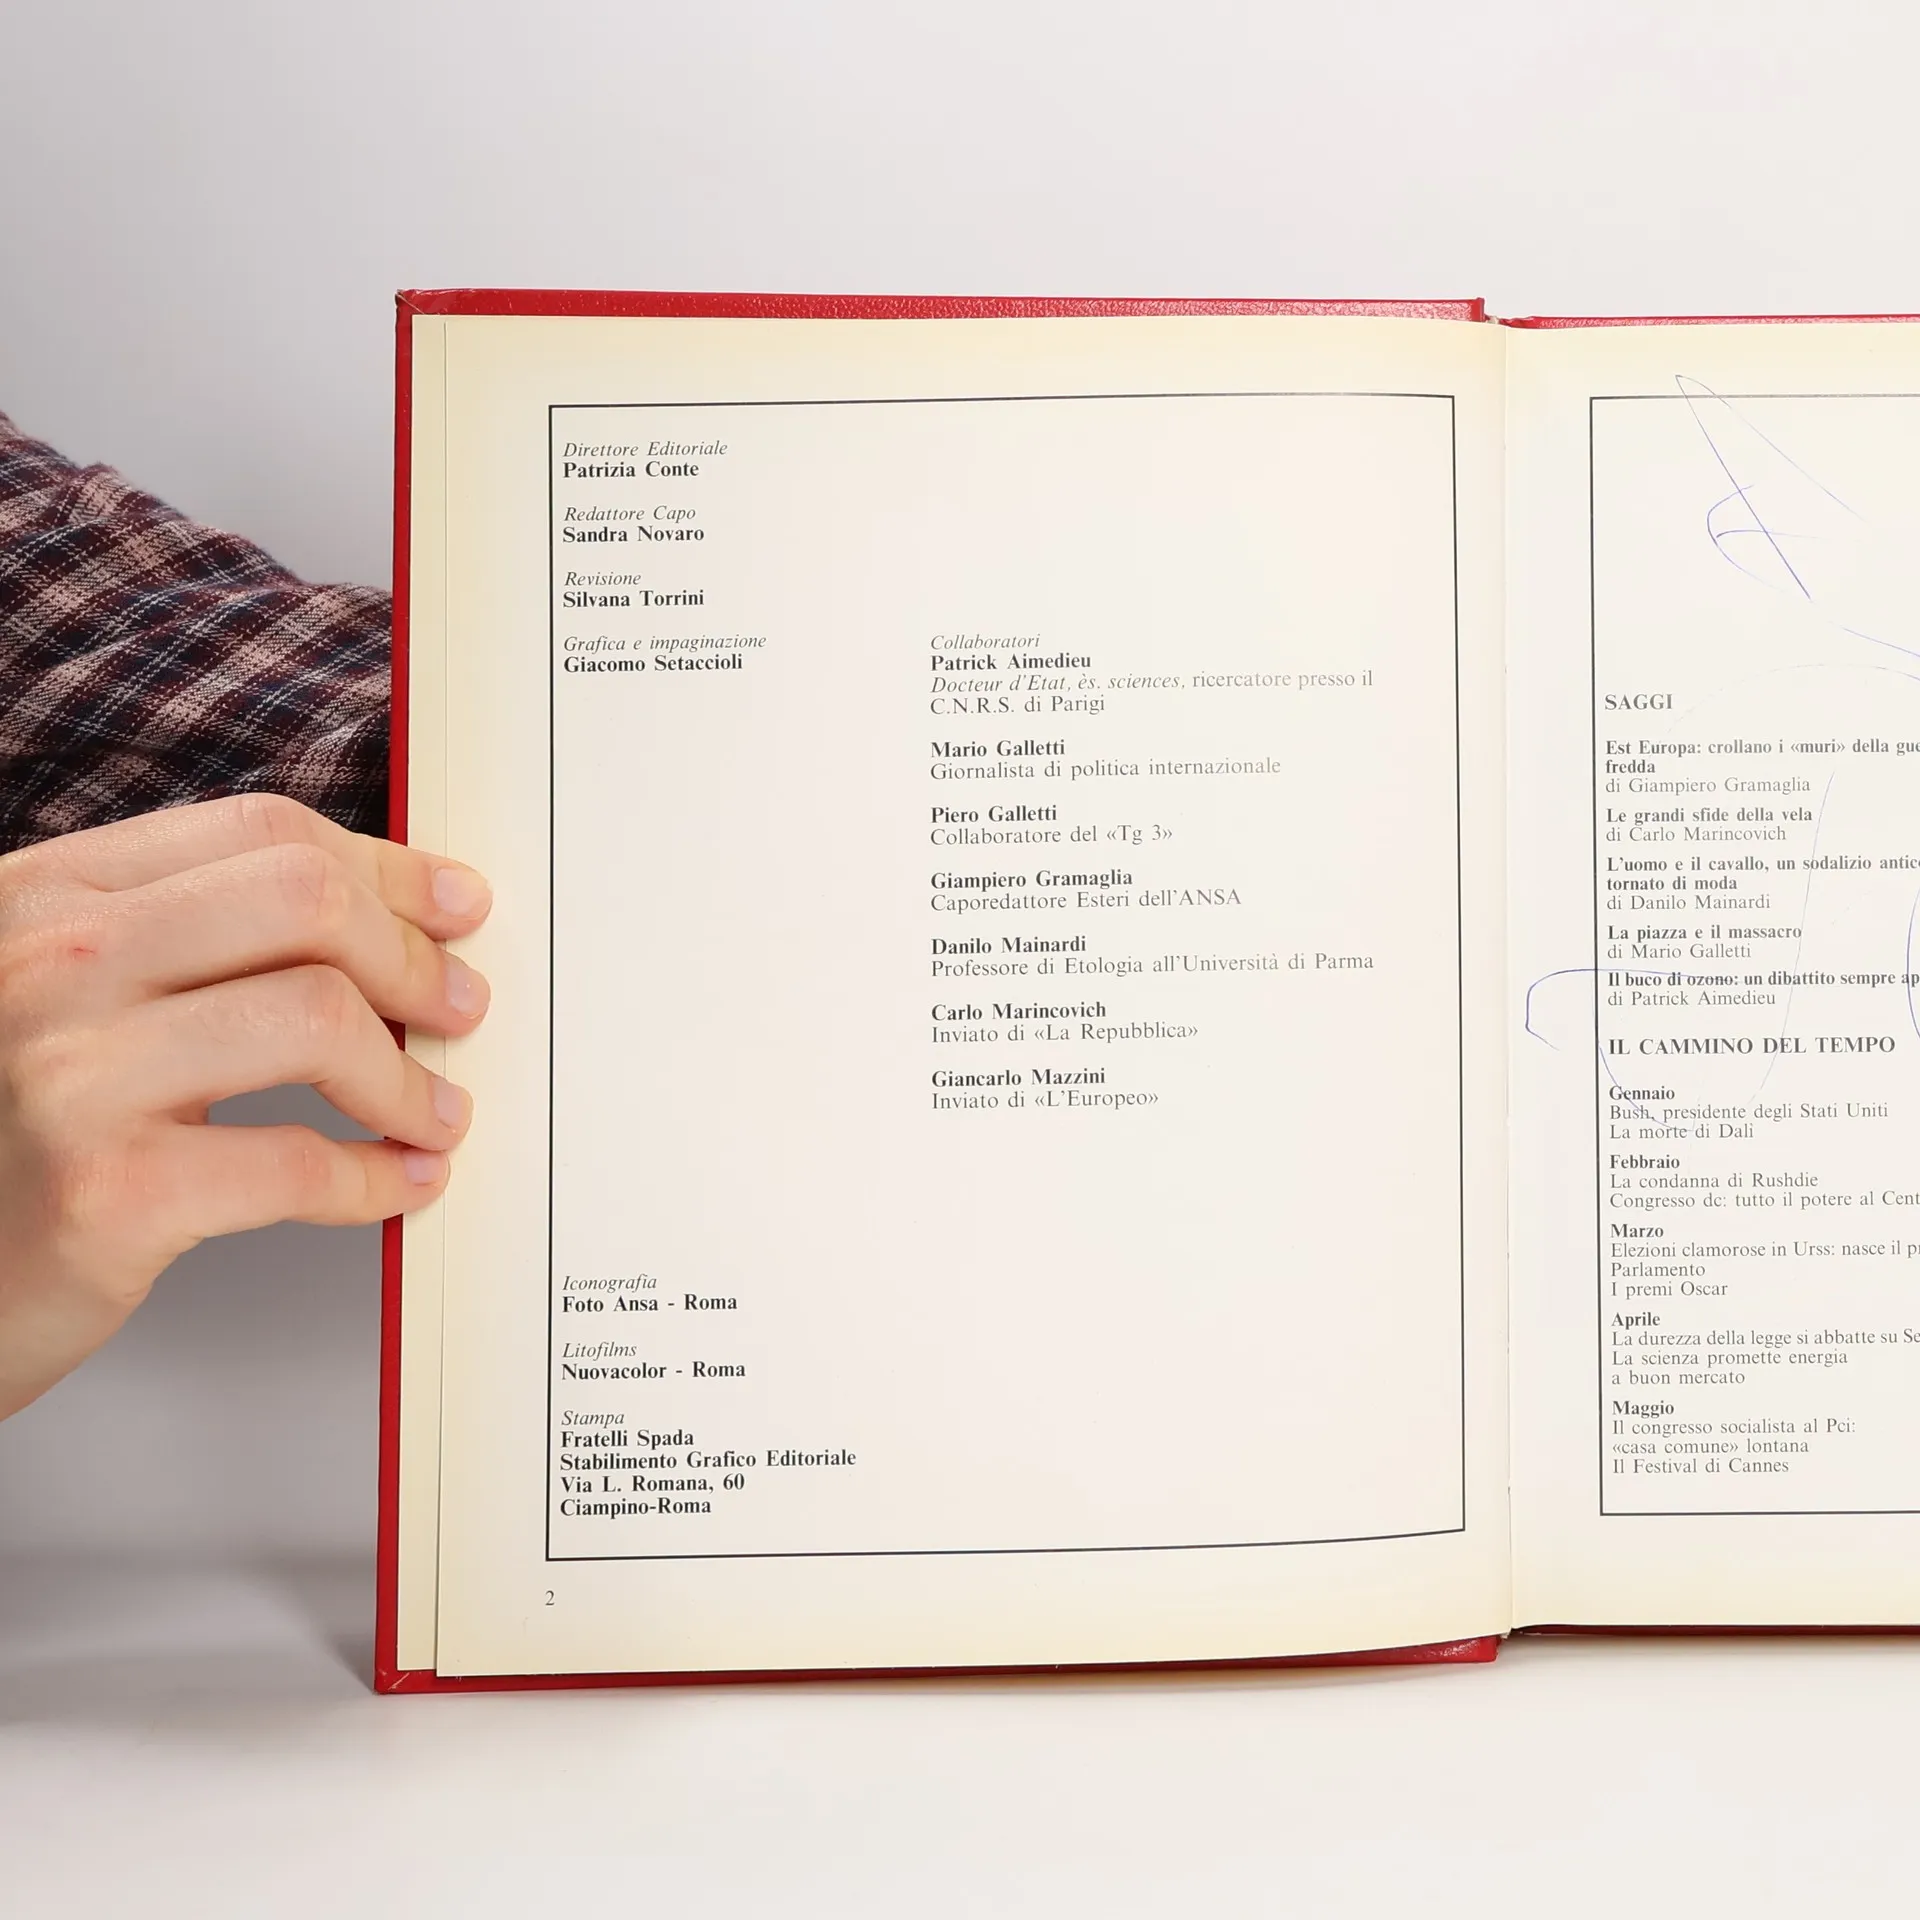 Direttore Editoriale
Patrizia Conte
Redattore Capo
Sandra Novaro
Revisione
Silvana Torrini
Grafica e impaginazione
Giacomo Setaccioli
Collaboratori
Patrick Aimedieu
Docteur d'Etat, ès. sciences, ricercatore presso il
C.N.R.S. di Parigi
Mario Galletti
Giornalista di politica internazionale
Piero Galletti
Collaboratore del «Tg 3»
Giampiero Gramaglia
Caporedattore Esteri dell'ANSA
Danilo Mainardi
Professore di Etologia all'Università di Parma
Carlo Marincovich
Inviato di «La Repubblica»
Giancarlo Mazzini
Inviato di «L'Europeo»
Iconografia
Foto Ansa - Roma
Litofilms
Nuovacolor - Roma
Stampa
Fratelli Spada
Stabilimento Grafico Editoriale
Via L. Romana, 60
Ciampino-Roma
2
SAGGI
Est Europa: crollano i «muri» della
fredda
di Giampiero Gramaglia
Le grandi sfide della vela
di Carlo Marincovich
L'uomo e il cavallo, un sodalizio
tornato di moda
di Danilo Mainardi
La piazza e il massacro
di Mario Galletti
Il buco di ozono: un dibattito sempre
di Patrick Aimedieu
IL CAMMINO DEL TEMPO
Gennaio
Bush, presidente degli Stati Uniti
La morte di Dalì
Febbraio
La condanna di Rushdie
Congresso dc: tutto il potere al
Marzo
Elezioni clamorose in Urss: nasce il
Parlamento
I premi Oscar
Aprile
La durezza della legge si abbatte su
La scienza promette energia
a buon mercato
Maggio
Il congresso socialista al Pci:
«casa comune» lontana
Il Festival di Cannes